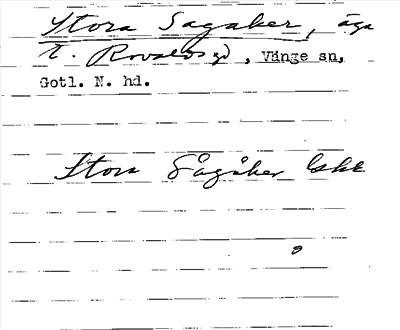 Stora Sågåker, äga
t. Rovalds gd, Vänge sn,
Gotl. N. hd.
Stora Sågåker Gsk